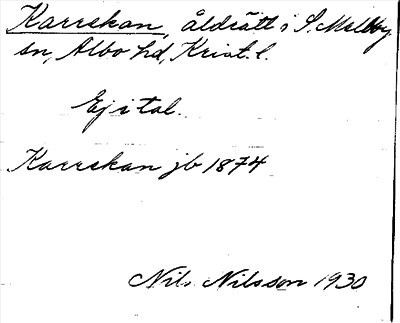 Karrekan, åldrätt i S. Mellby
sn, Albo hd, Krist. l.
Ej i tal.
Karrekan jb 1874
Nils Nilsson 1930